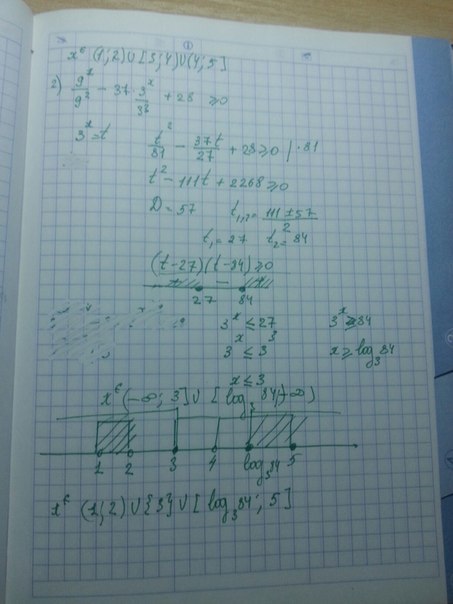 ①
x ∈ (1; 2) ∪ [3; 4) ∪ (4; 5]
2) 9^x/9^2 − 37 · 3^x/3^3 + 28 ≥ 0
3^x = t
t^2/81 − 37t/27 + 28 ≥ 0 | · 81
t^2 − 111t + 2268 ≥ 0
D = 57 t_{1,2} = (111 ± 57)/2
t_1 = 27 t_2 = 84
(t − 27)(t − 84) ≥ 0
+ − +
27 84
3^x ≤ 27 3^x ≥ 84
3^x ≤ 3^3 x ≥ log_3 84
x ≤ 3
x ∈ (−∞; 3] ∪ [log_3 84; +∞)
1 2 3 4 log_3 84 5
x ∈ (1; 2) ∪ {3} ∪ [log_3 84; 5]